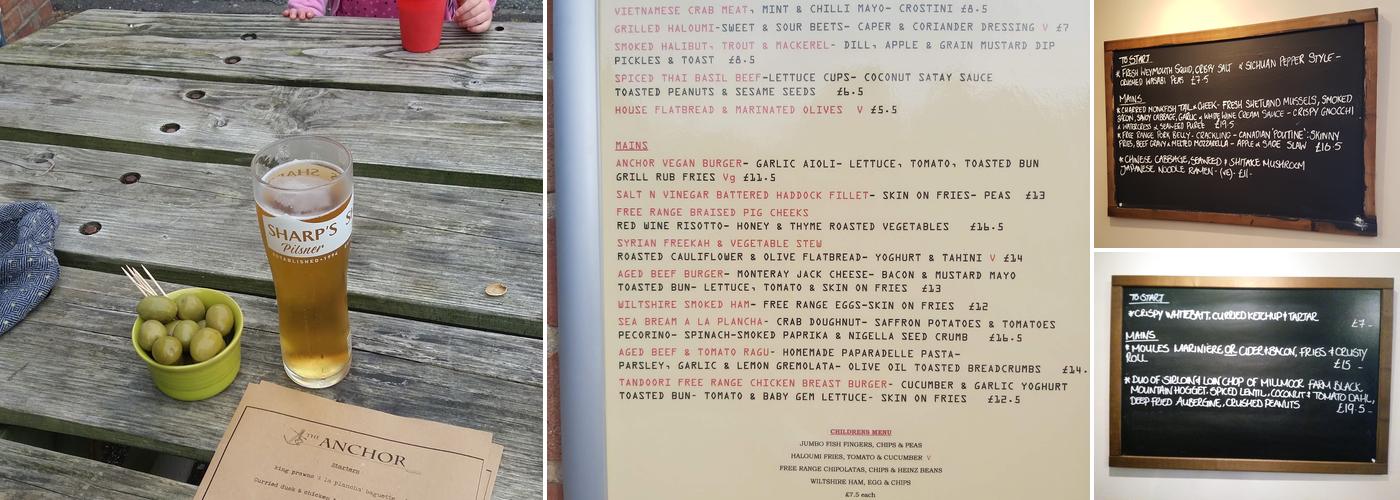 SHARP'S
Pilsner
ESTABLISHED·1994
THE ANCHOR
Starters
king prawns à la plancha baguette
Curried duck & chicken
VIETNAMESE CRAB MEAT, MINT & CHILLI MAYO- CROSTINI £8.5
GRILLED HALOUMI-SWEET & SOUR BEETS- CAPER & CORIANDER DRESSING V £7
SMOKED HALIBUT, TROUT & MACKEREL- DILL, APPLE & GRAIN MUSTARD DIP
PICKLES & TOAST £8.5
SPICED THAI BASIL BEEF-LETTUCE CUPS- COCONUT SATAY SAUCE
TOASTED PEANUTS & SESAME SEEDS £6.5
HOUSE FLATBREAD & MARINATED OLIVES V £5.5
MAINS
ANCHOR VEGAN BURGER- GARLIC AIOLI- LETTUCE, TOMATO, TOASTED BUN
GRILL RUB FRIES Vg £11.5
SALT N VINEGAR BATTERED HADDOCK FILLET- SKIN ON FRIES- PEAS £13
FREE RANGE BRAISED PIG CHEEKS
RED WINE RISOTTO- HONEY & THYME ROASTED VEGETABLES £16.5
SYRIAN FREEKAH & VEGETABLE STEW
ROASTED CAULIFLOWER & OLIVE FLATBREAD- YOGHURT & TAHINI V £14
AGED BEEF BURGER- MONTERAY JACK CHEESE- BACON & MUSTARD MAYO
TOASTED BUN- LETTUCE, TOMATO & SKIN ON FRIES £13
WILTSHIRE SMOKED HAM- FREE RANGE EGGS-SKIN ON FRIES £12
SEA BREAM A LA PLANCHA- CRAB DOUGHNUT- SAFFRON POTATOES & TOMATOES
PECORINO- SPINACH-SMOKED PAPRIKA & NIGELLA SEED CRUMB £16.5
AGED BEEF & TOMATO RAGU- HOMEMADE PAPARADELLE PASTA-
PARSLEY, GARLIC & LEMON GREMOLATA- OLIVE OIL TOASTED BREADCRUMBS £14.
TANDOORI FREE RANGE CHICKEN BREAST BURGER- CUCUMBER & GARLIC YOGHURT
TOASTED BUN- TOMATO & BABY GEM LETTUCE- SKIN ON FRIES £12.5
CHILDRENS MENU
JUMBO FISH FINGERS, CHIPS & PEAS
HALOUMI FRIES, TOMATO & CUCUMBER V
FREE RANGE CHIPOLATAS, CHIPS & HEINZ BEANS
WILTSHIRE HAM, EGG & CHIPS
£7.5 each
TO START
* FRESH WEYMOUTH SQUID, CRISPY SALT & SICHUAN PEPPER STYLE-
CRUSHED WASABI PEAS £7.5
MAINS
* CHARRED MONKFISH TAIL & CHEEK- FRESH SHETLAND MUSSELS, SMOKED
BACON, SAVOY CABBAGE, GARLIC & WHITE WINE CREAM SAUCE - CRISPY GNOCCHI
& WATERCRESS & SEAWEED PUREE £19.5
* FREE RANGE PORK BELLY - CRACKLING - CANADIAN 'POUTINE': SKINNY
FRIES, BEEF GRAVY & MELTED MOZZARELLA - APPLE & SAGE SLAW £16.5
* CHINESE CABBAGE, SEAWEED & SHITAKE MUSHROOM
JAPANESE NOODLE RAMEN- (VE)- £11-
TO START
* CRISPY WHITEBAIT, CURRIED KETCHUP & TARTAR
£7-
MAINS
* MOULES MARINIERE OR CIDER & BACON, FRIES & CRUSTY
ROLL £15 -
* DUO OF SIRLOIN & LOIN CHOP OF MILLMOOR FARM BLACK
MOUNTAIN HOGGET, SPICED LENTIL, COCONUT & TOMATO DAHL,
DEEP FRIED AUBERGINE, CRUSHED PEANUTS £19.5-